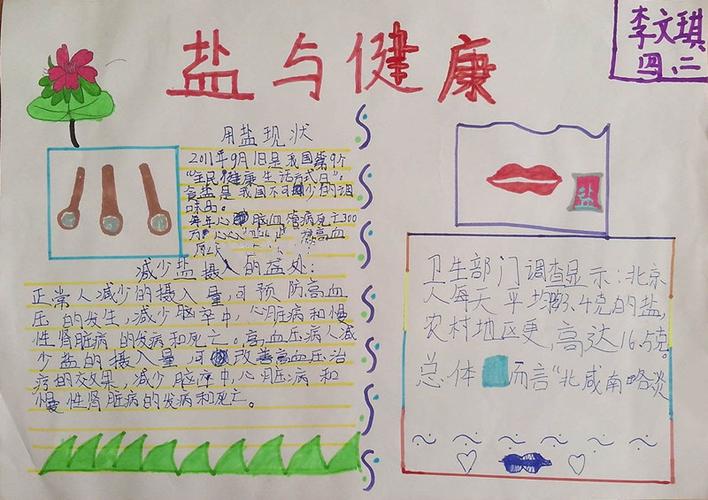 盐与健康
李文琪
四、二
用盐现状
2011年9月1日是我国第9个
"全民健康生活方式日"。
食盐是我国不可缺少的调
味品。
每年心脑血管病死亡300
万 高血
减少盐摄入的益处:
正常人减少的摄入量,可预防高血
压的发生,减少脑卒中,心脏病和慢
性肾脏病的发病和死亡。高血压病人减
少盐的摄入量,可改善高血压治
疗的效果,减少脑卒中,心脏病和
慢性肾脏病的发病和死亡。
盐
卫生部门调查显示:北京
人每天平均13.4克的盐,
农村地区更高达16.5克。
总体而言"北咸南略淡